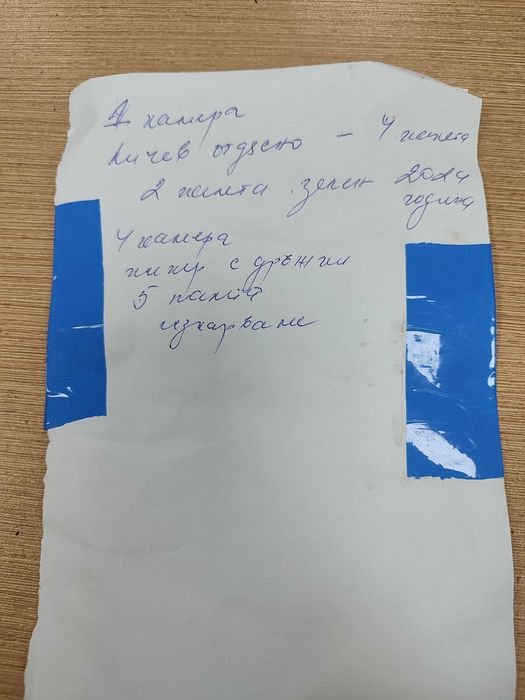 камера
Кичев отдясно – 4 палета
2 палета зелен 2024
година
4 камера
пипер с дръжки
5 палета
изкарване